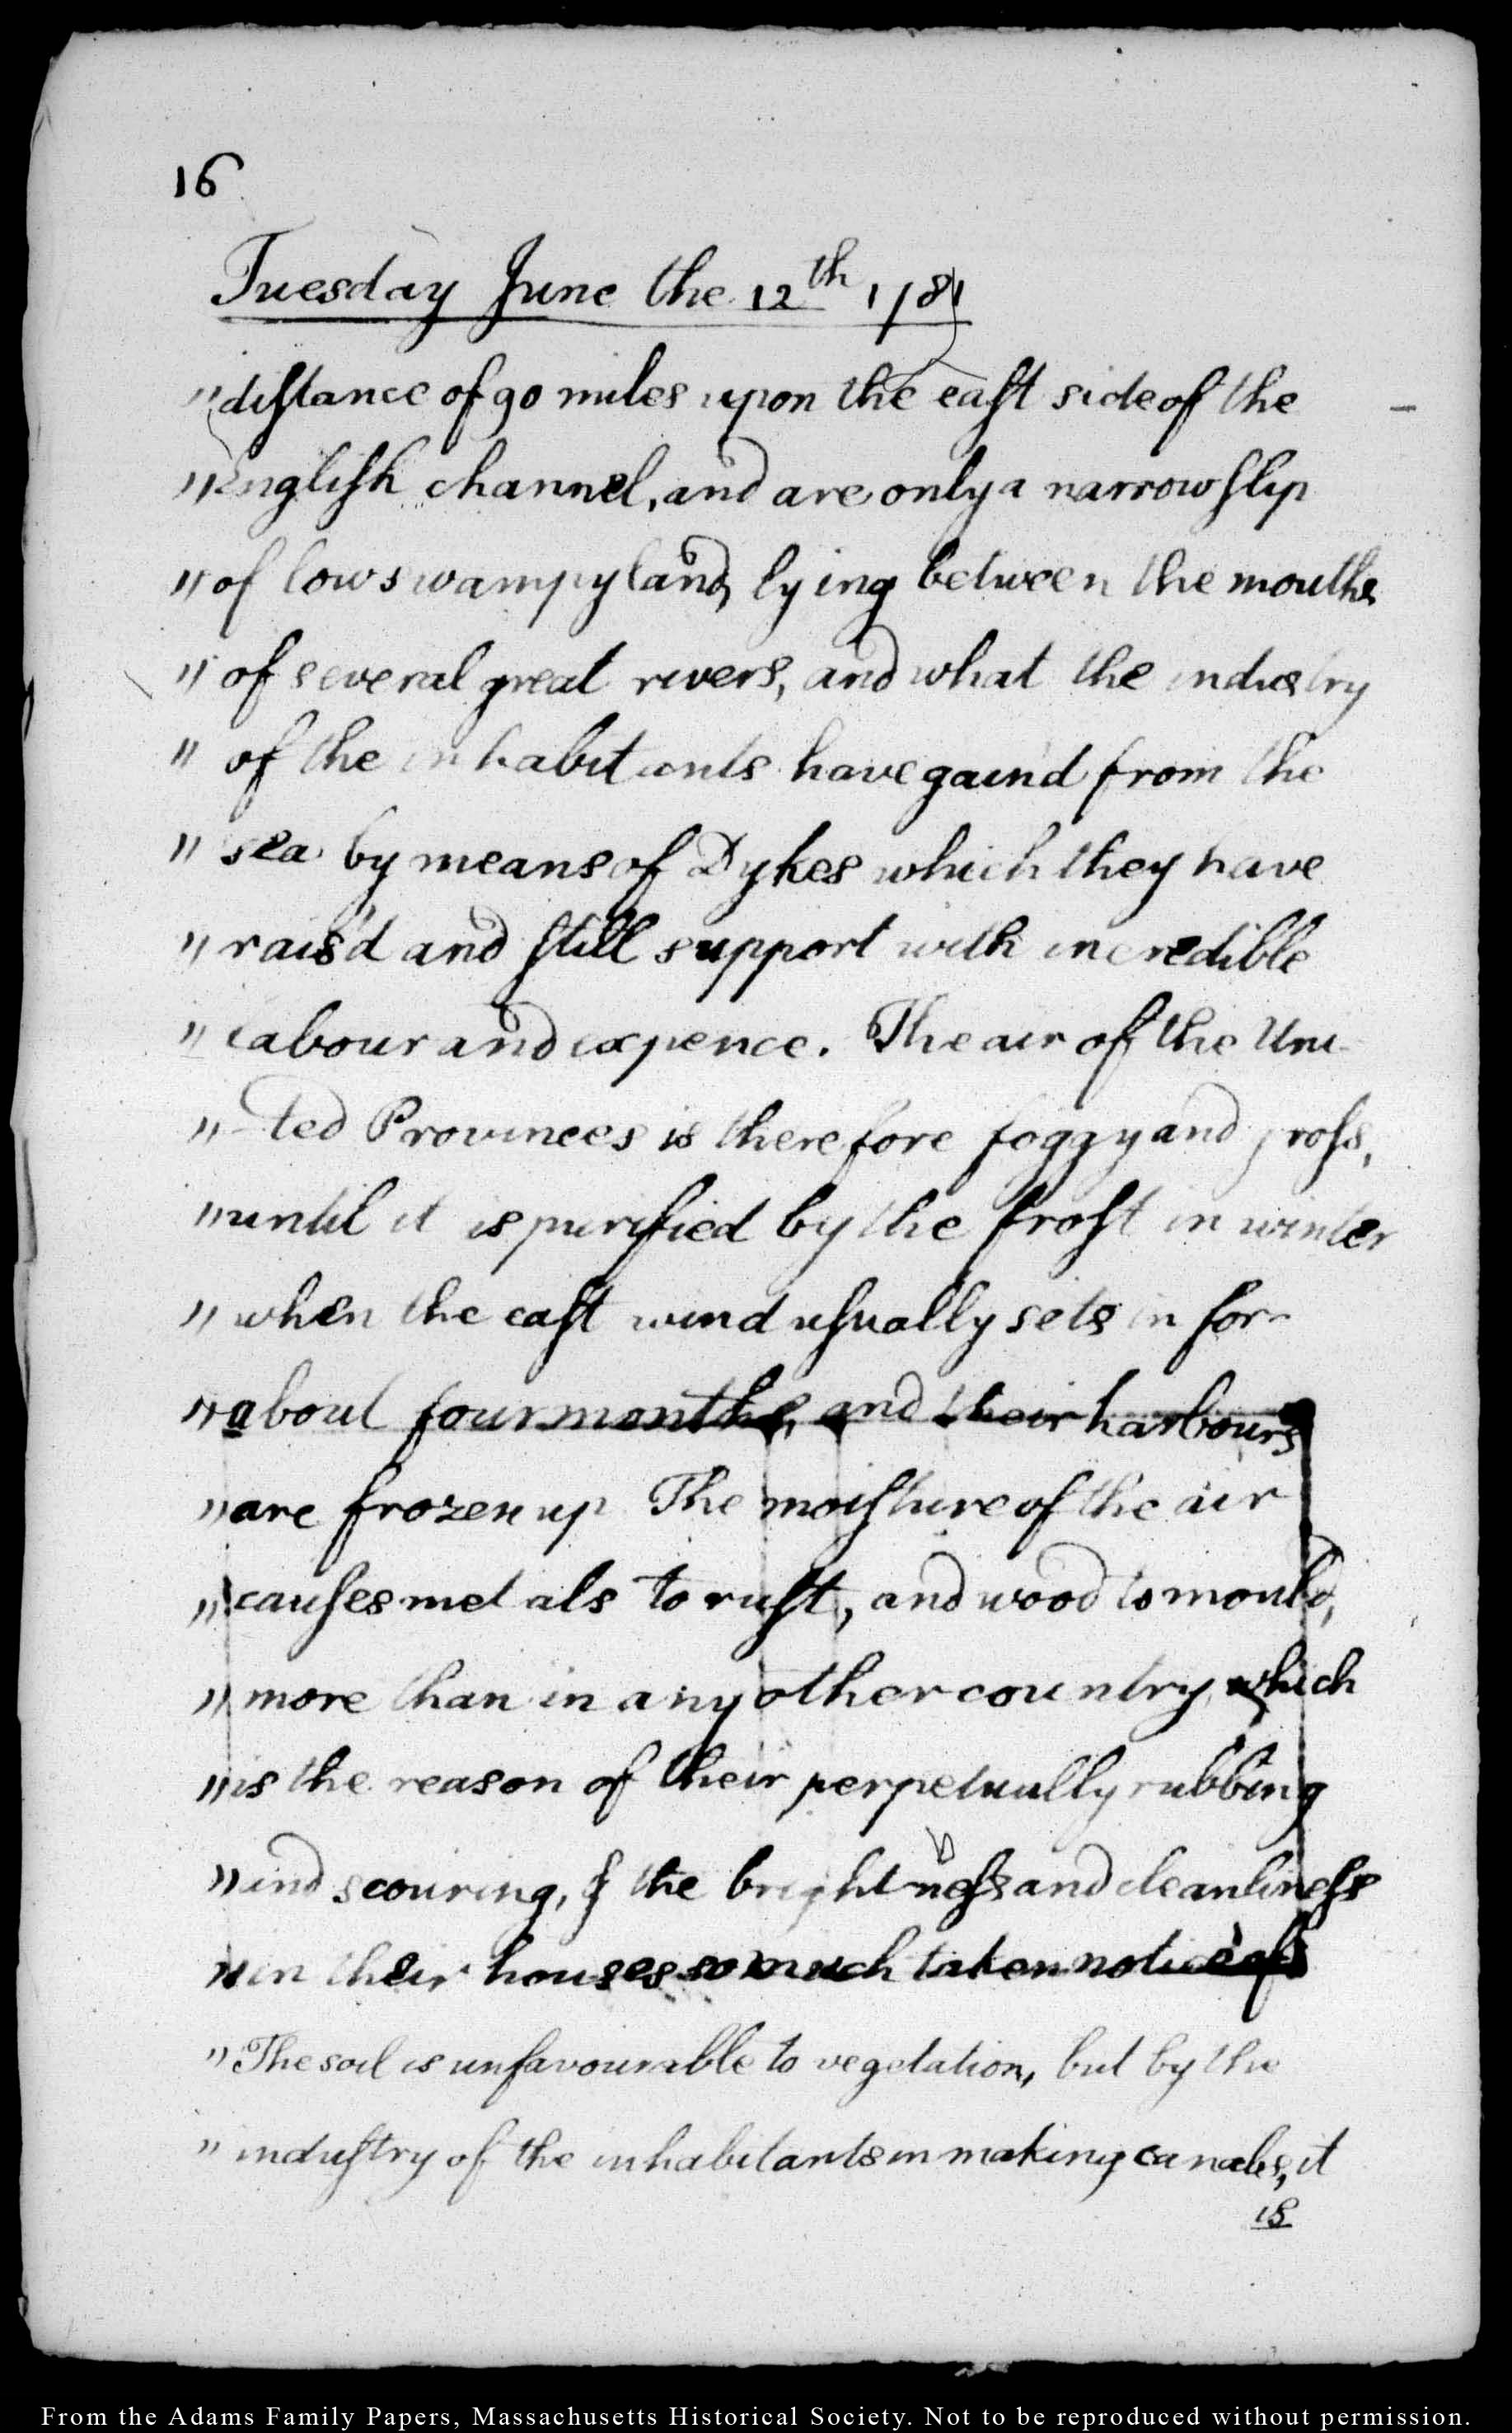 16
Tuesday June the 12th 1781
"distance of 90 miles upon the east side of the
"English channel, and are only a narrow slip
"of low swampy land, lying between the mouths
"of several great rivers, and what the industry
"of the inhabitants have gain'd from the
"sea by means of Dykes which they have
"rais'd and still support with incredible
"labour and expence. The air of the Uni-
"-ted Provinces is therefore foggy and gross,
"until it is purified by the frost in winter
"when the east wind usually sets in for
"about four months, and their harbours
"are frozen up The moisture of the air
"causes metals to rust, and wood to mould,
"more than in any other country, which
"is the reason of their perpetually rubbing
"and scouring, & the brightness and cleanliness
"in their houses so much taken notice of
"The soil is unfavourable to vegetation, but by the
"industry of the inhabitants in making canals, it
is
From the Adams Family Papers, Massachusetts Historical Society. Not to be reproduced without permission.